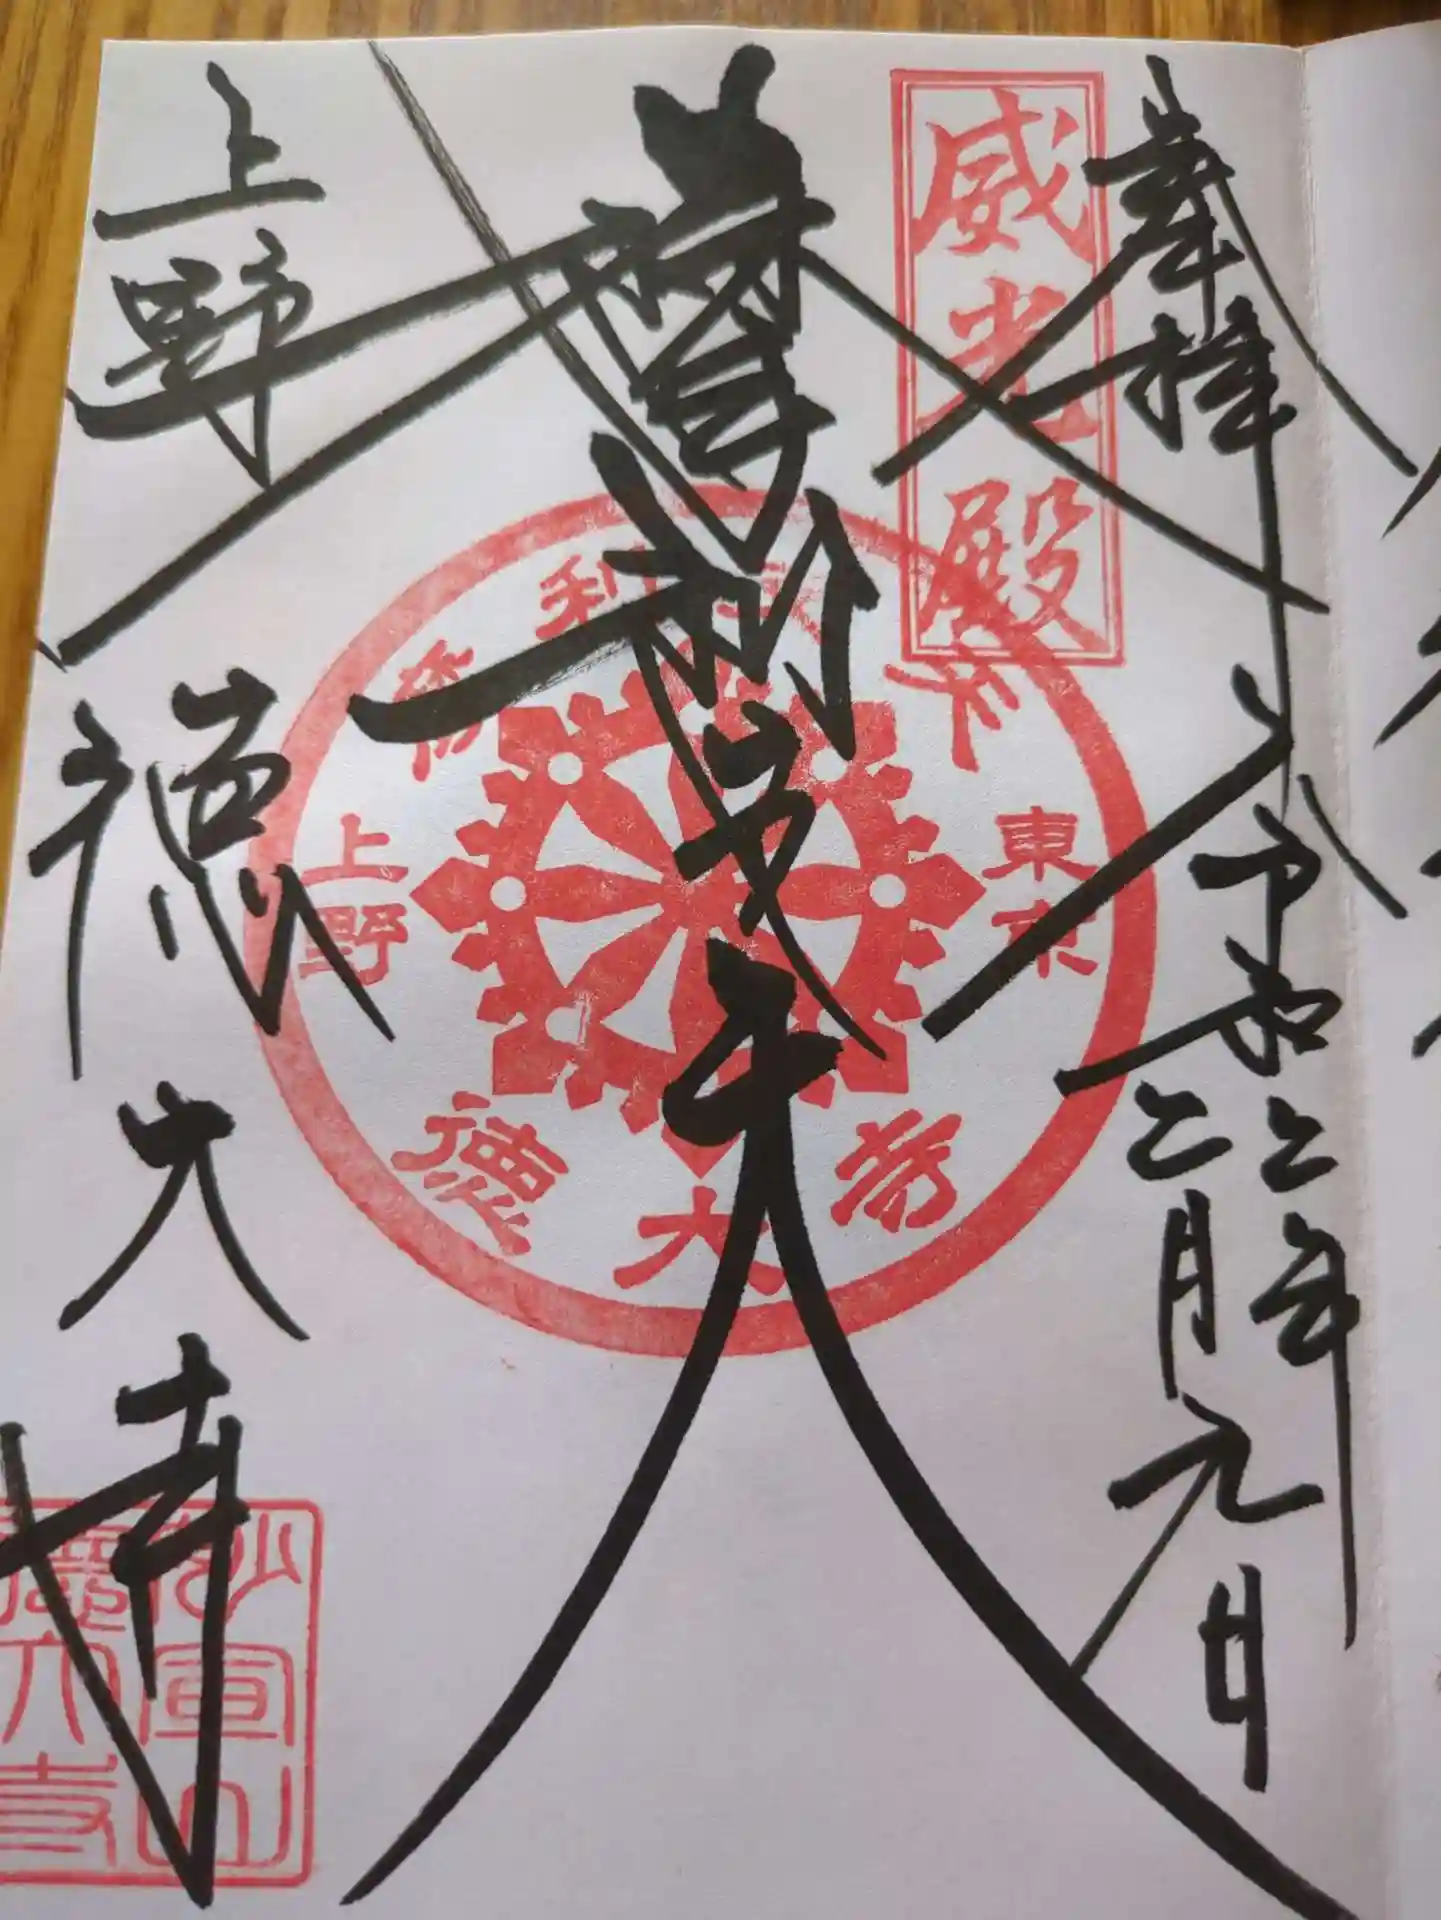 奉拝
令和二年
二月元日
威光殿
摩利支天
摩利支天
東京
上野
徳大寺
上野
徳大寺
妙宣山
徳大寺